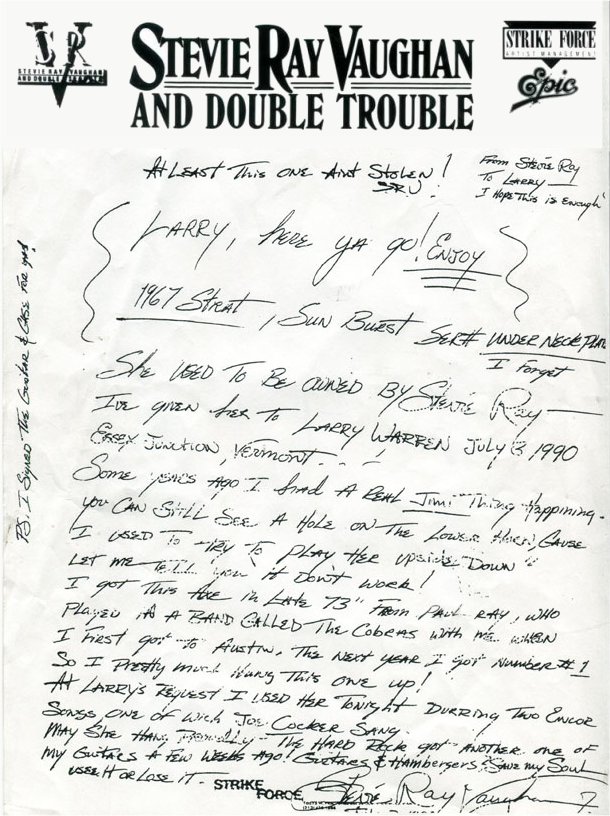 SRV
STEVIE RAY VAUGHAN
AND DOUBLE TROUBLE
STEVIE RAY VAUGHAN
AND DOUBLE TROUBLE
STRIKE FORCE
ARTIST MANAGEMENT
Epic
At Least This one Aint Stolen!
SRV
From Stevie Ray
To Larry
I Hope This is enough
Larry, here ya go! Enjoy
1967 Strat, Sun Burst Ser# under neck plate
I forget
She used to be owned by Stevie Ray
I've given her to Larry Warren July 1990
Essex Junction, Vermont
Some years ago I had a real Jimi Thing Happining.
you can still see a hole on the Lower Horn, Cause
I used to try to play her upside down
Let me tell you it Don't work!
I got this Axe in Late 73" from Paul Ray, who
Played in a band called The Cobras with me when
I first got to Austin. The next year I got Number #1
So I pretty much hung this one up!
At Larry's request I used her tonight Durring Two Encor
Songs, one of wich Joe Cocker sang.
May she hang The Hard Rock got another one of
my guitars a few weeks ago! Guitars & Hambergers? Save my Soul
use it or lose it.
STRIKE
FORCE
Stevie Ray Vaughan
P.S. I signed the Guitar & Case for ya!